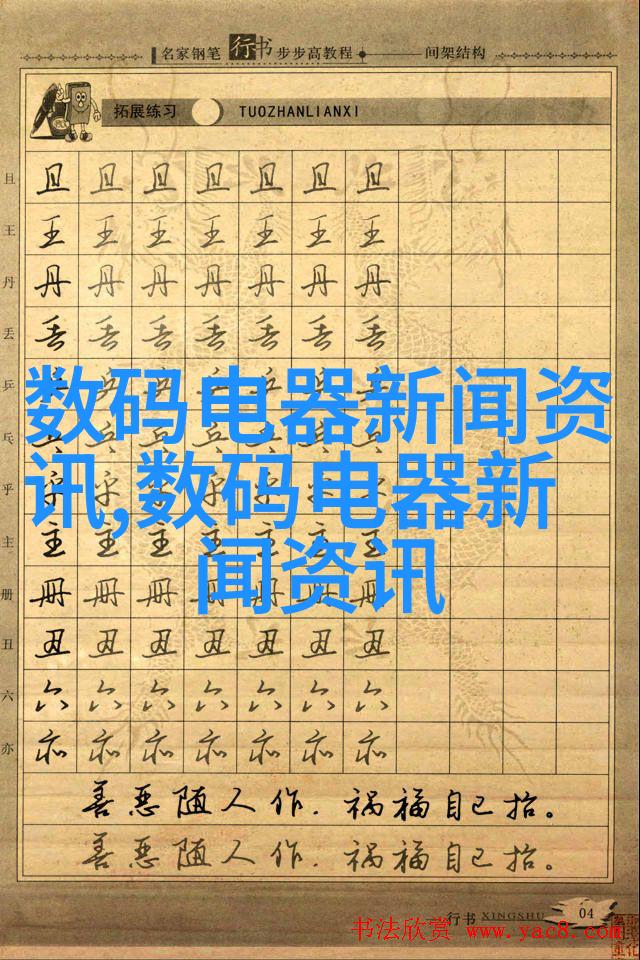 名家钢笔行书步步高教程 间架结构
拓展练习 TUOZHANLIANXI
且 且 且 且 且 且 且 且
王 王 王 王 王 王 王 王
丹 丹 丹 丹 丹 丹 丹 丹
丢 丢 丢 丢 丢 丢 丢 丢
乒
数码电器新闻资
乓
讯,数码电器新
乎
闻资讯
主 主 主 主 主 主 主 主
册 册 册 册 册 册 册 册
丑 丑 丑 丑 丑 丑 丑 丑
六 六 六 六 六 六 六 六
亦 亦 亦 亦 亦 亦 亦 亦
善恶随人作.祸福自己招。
善恶随人作.祸福自己招。
行书 XINGSHU 04
书法欣赏 www.yac8.com